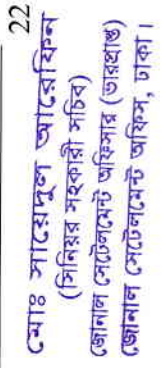 22
মোঃ সায়েদুল আরেফিন
(সিনিয়র সহকারী সচিব)
জোনাল সেটেলমেন্ট অফিসার (ভারপ্রাপ্ত)
জোনাল সেটেলমেন্ট অফিস, ঢাকা।